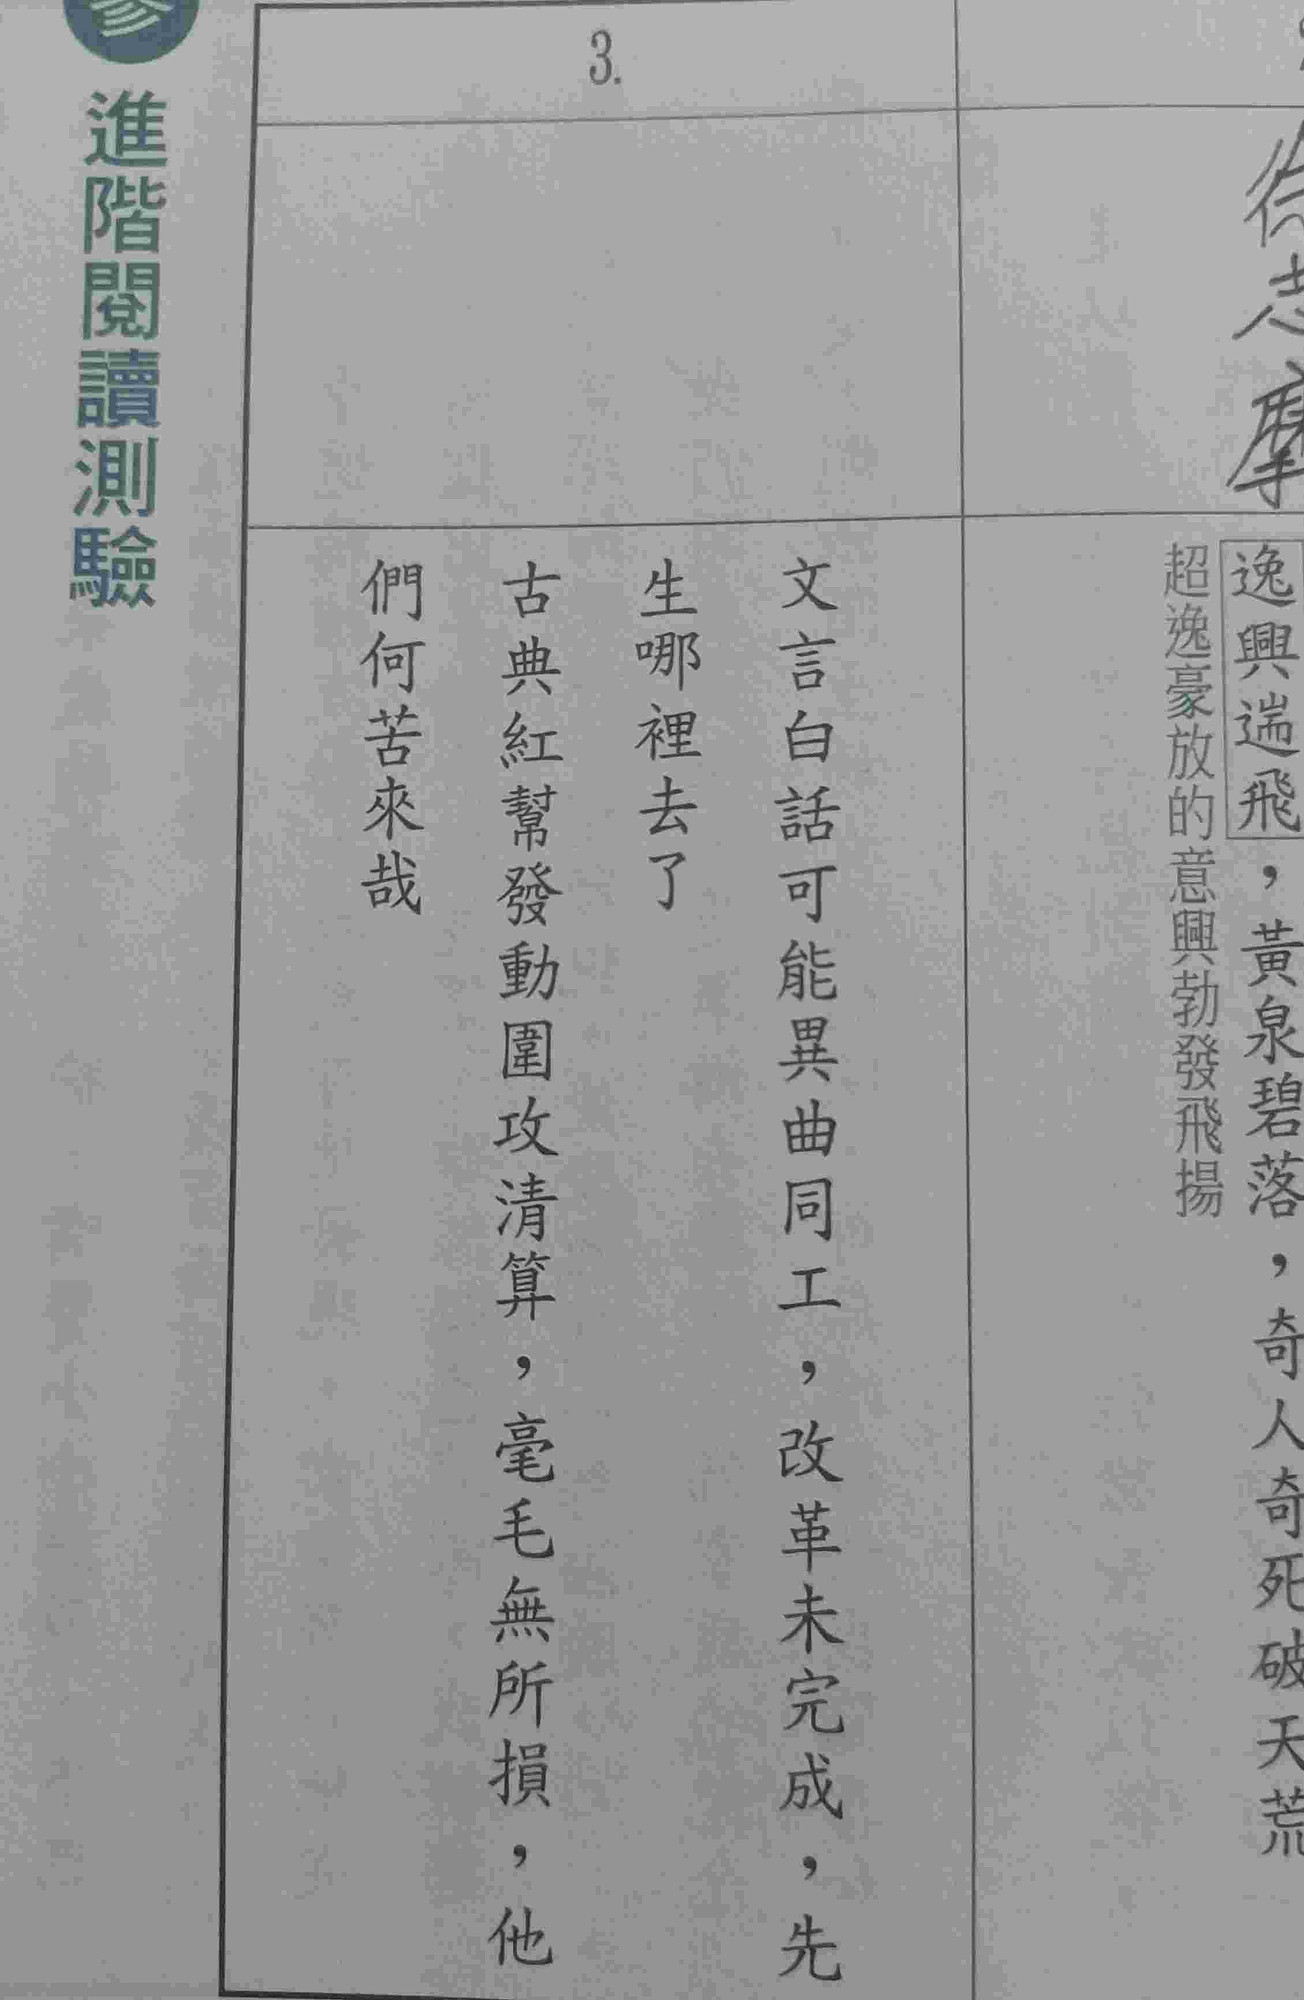 徐志摩
逸興遄飛，黃泉碧落，奇人奇死破天荒
超逸豪放的意興勃發飛揚
3.
文言白話可能異曲同工，改革未完成，先
生哪裡去了
古典紅幫發動圍攻清算，毫毛無所損，他
們何苦來哉
參
進階閱讀測驗